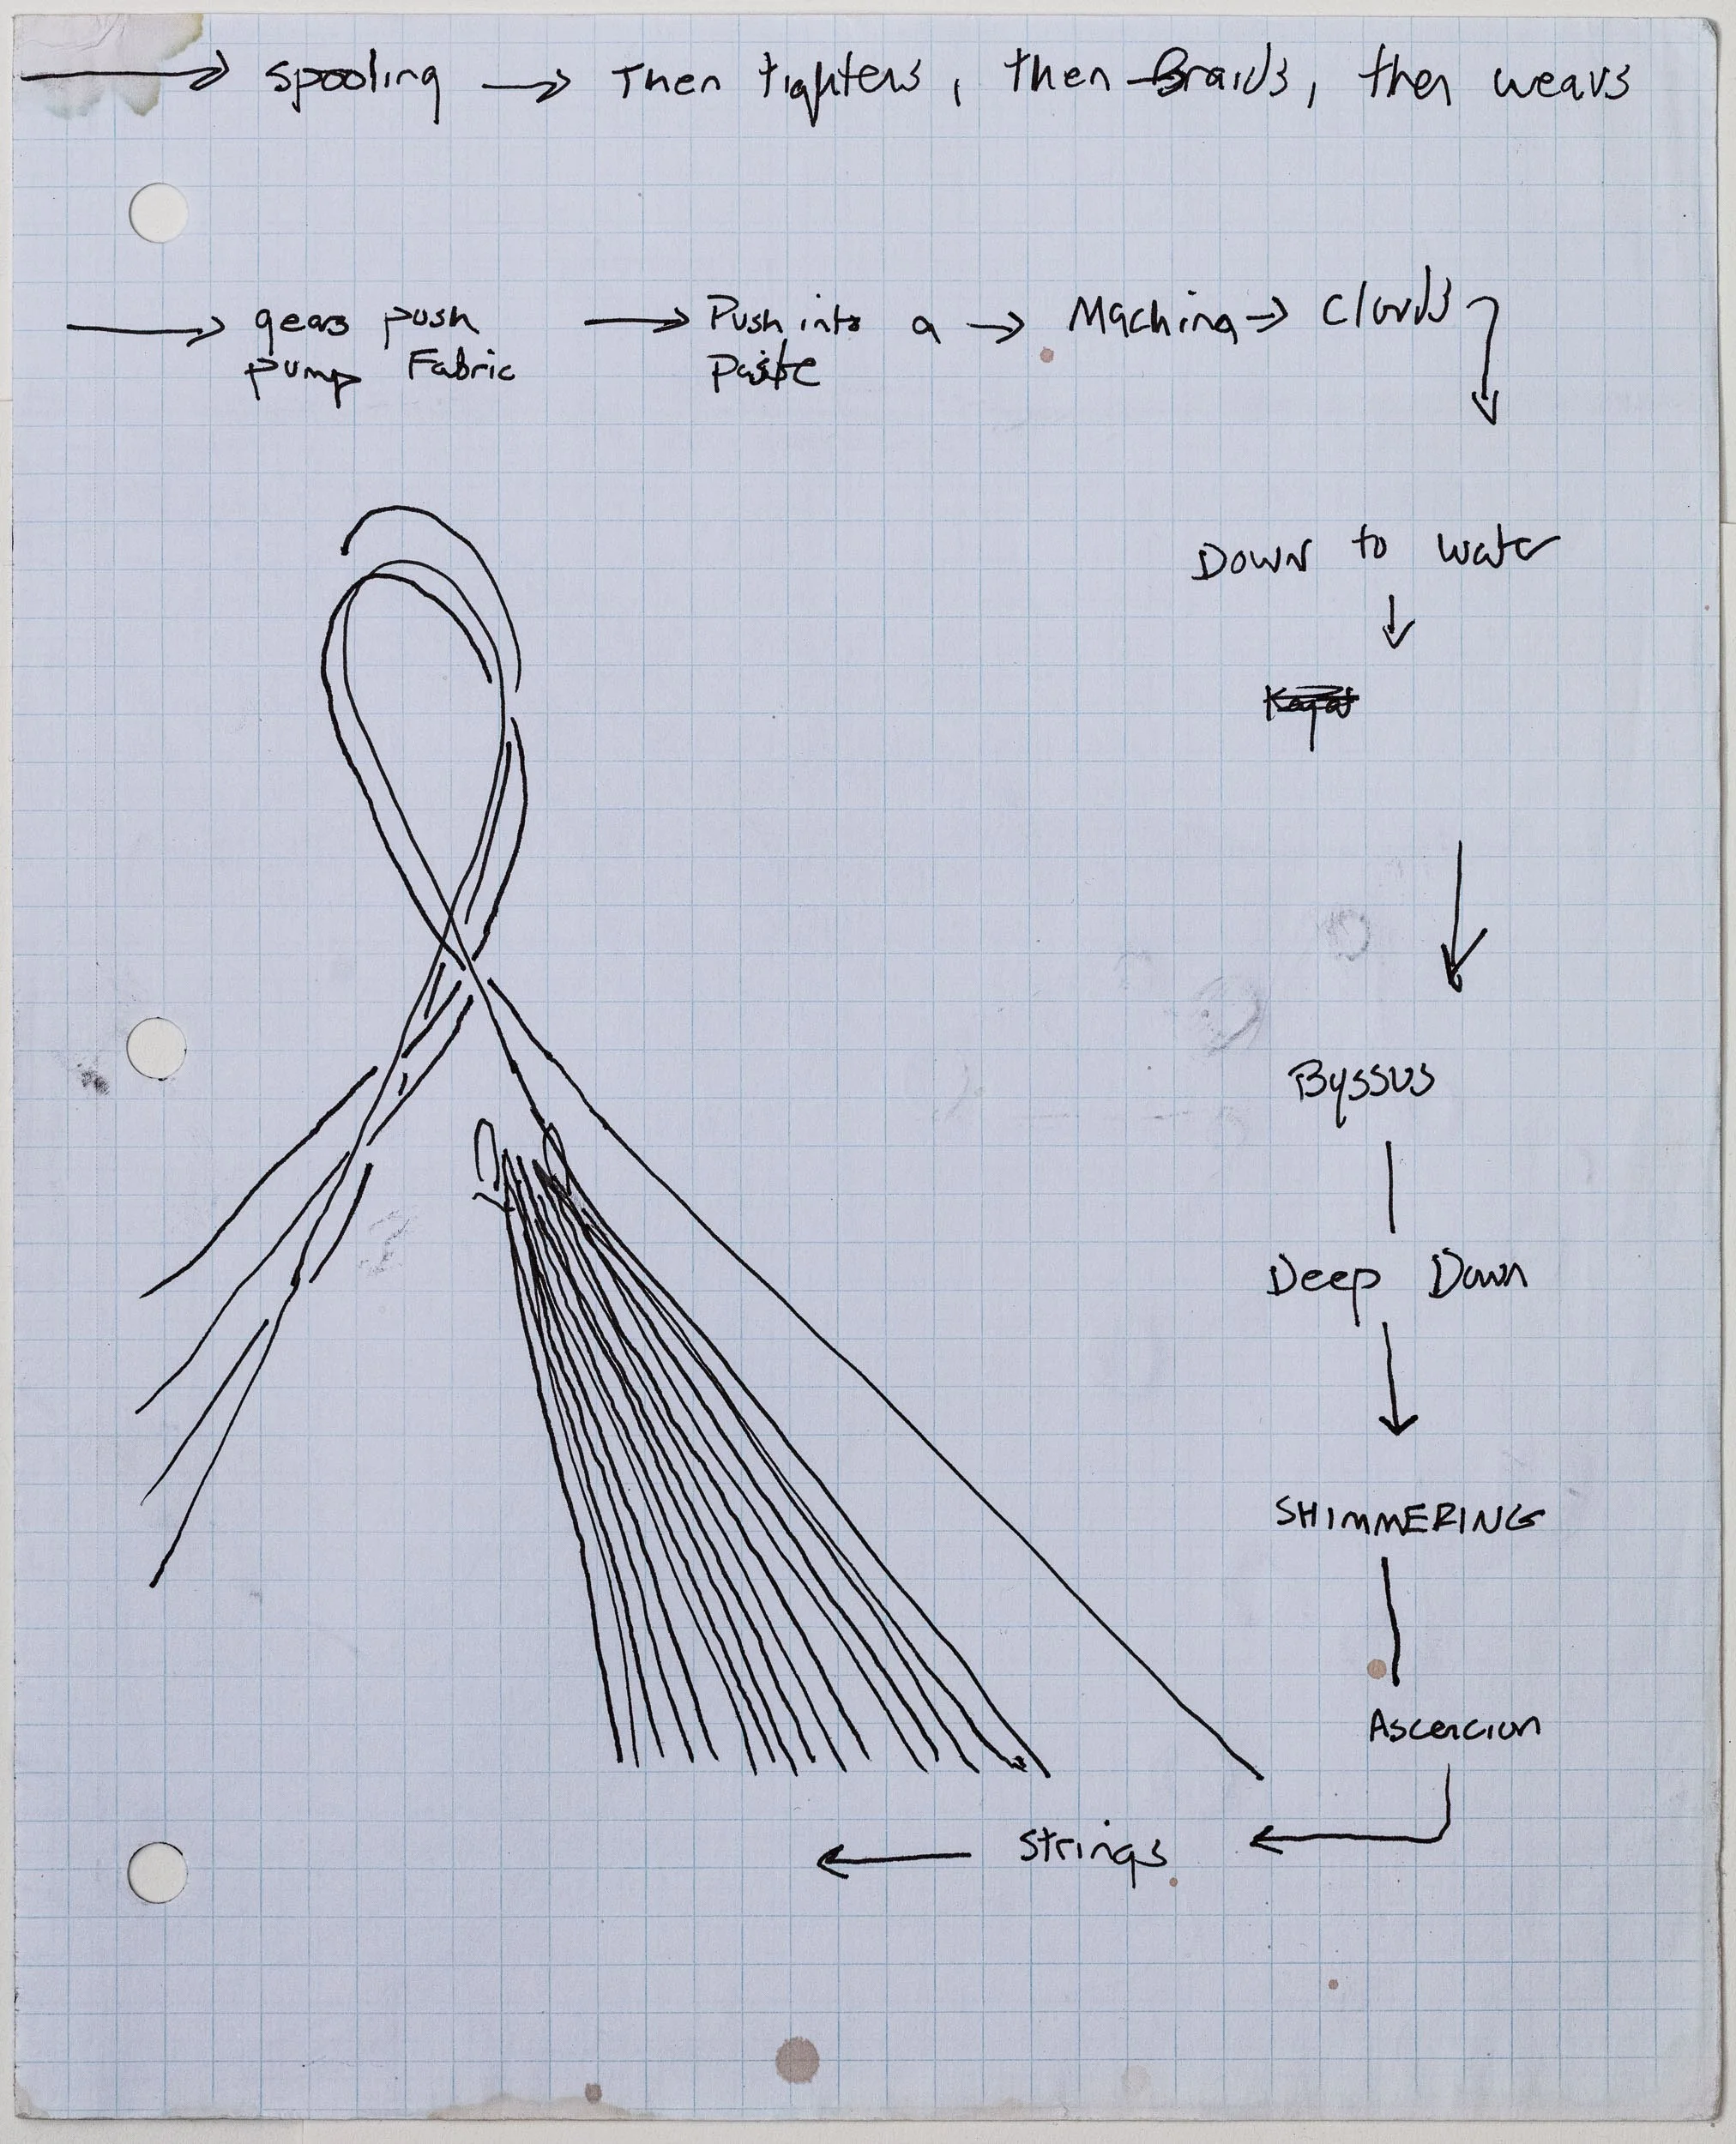 spooling → Then tightens, then Braids, then weavs
gears push → Push into a → Machina → Clouds
pump Fabric Paste
Down to water
Byssus
Deep Down
SHIMMERING
Ascencion
Strings